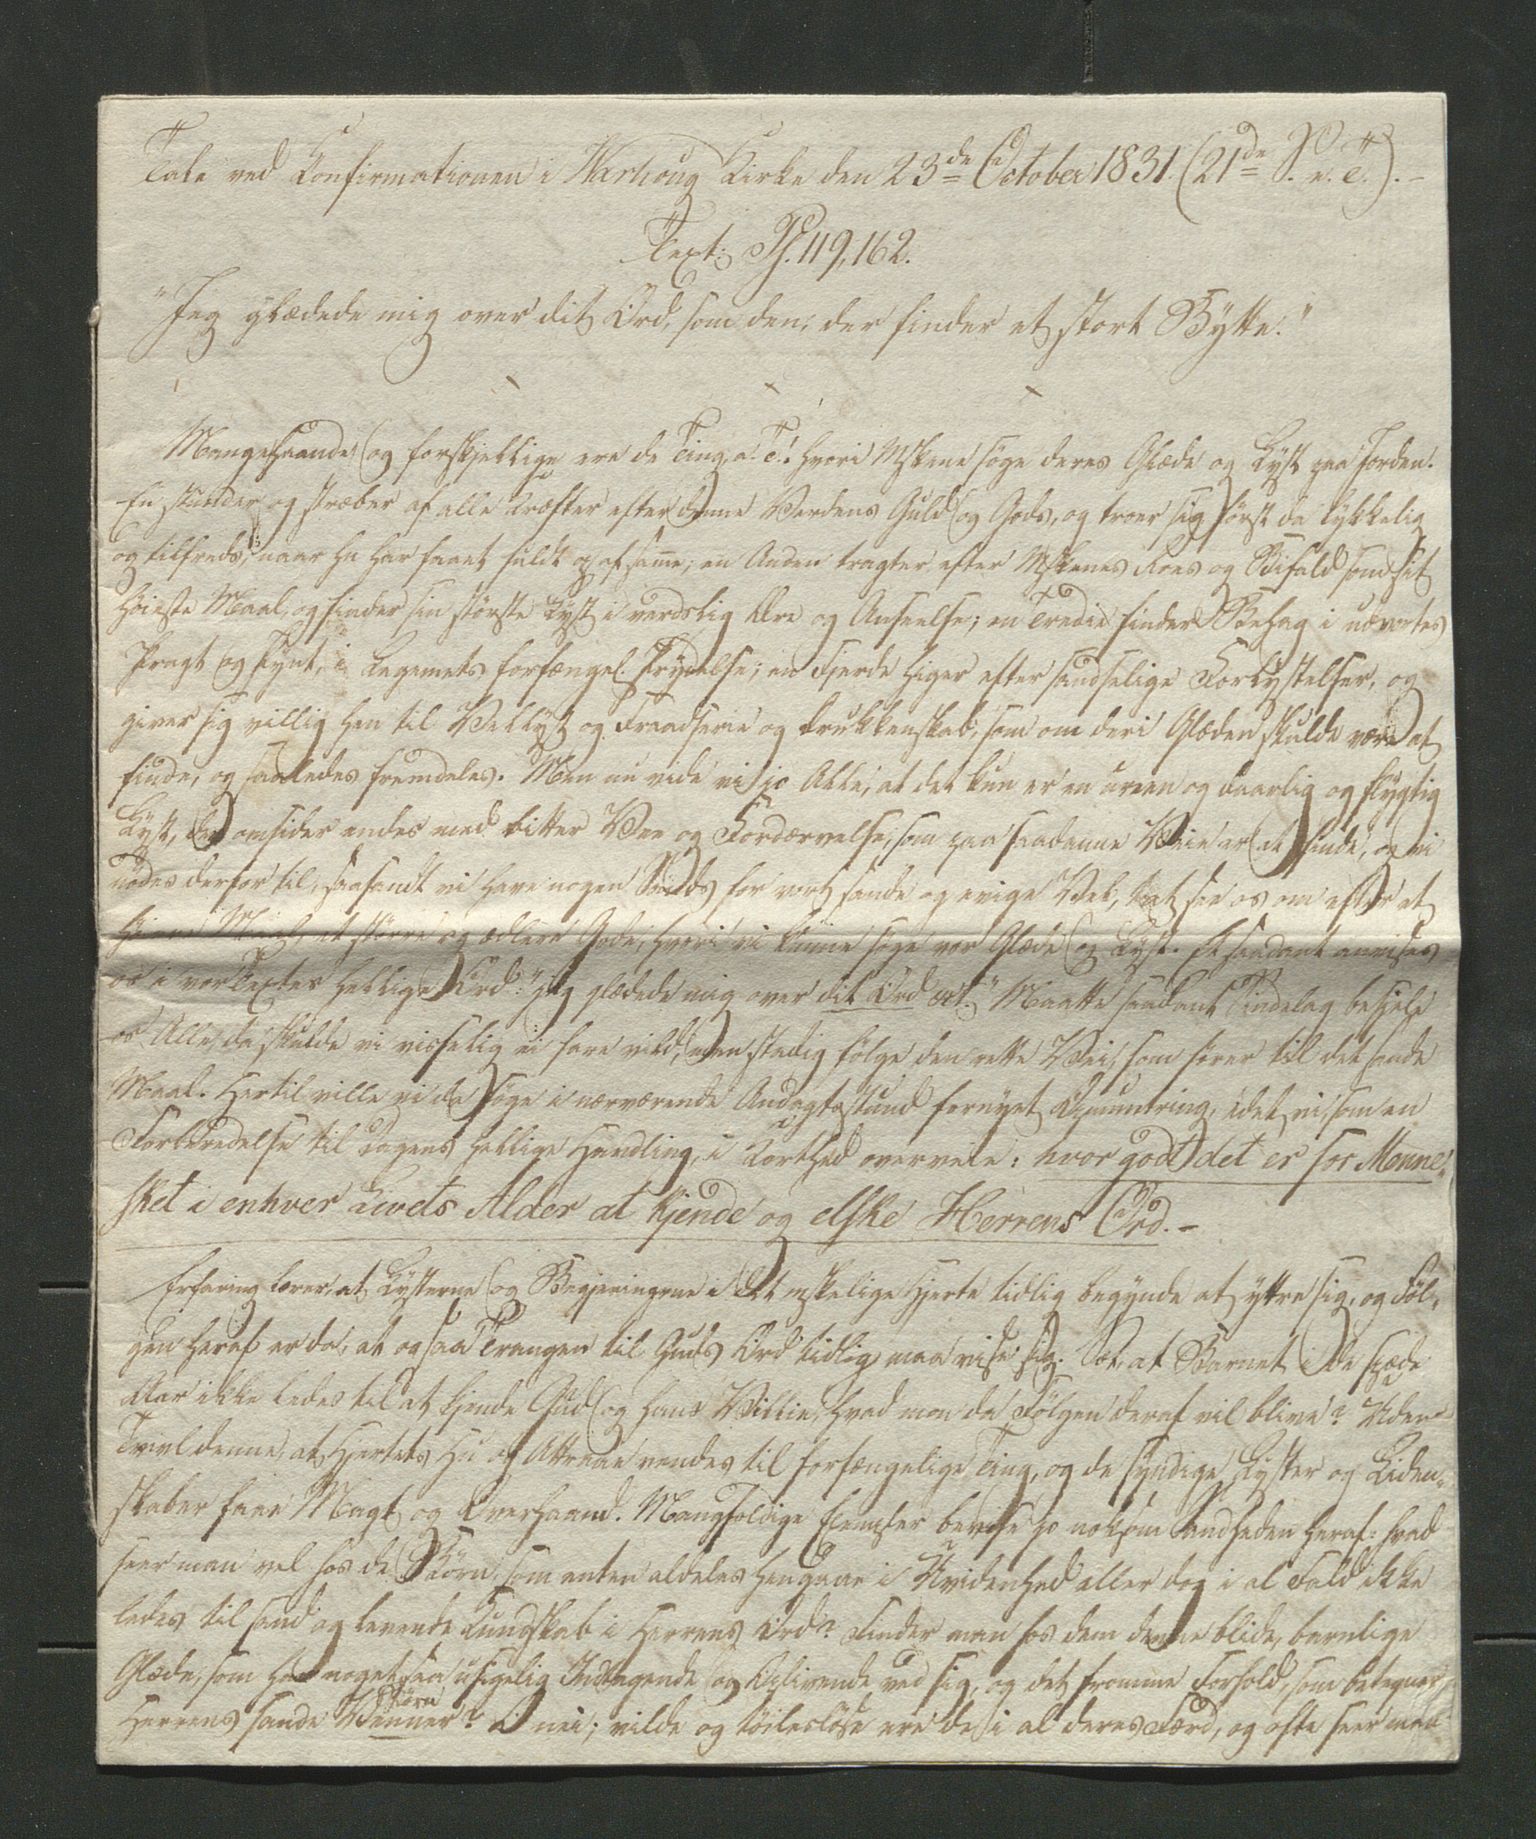 Tale ved Confirmationen i Warhoug Kirke den 23de October 1831. (21de S. e. T.). –
Text: Ps. 119, 162.
"Jeg glædede mig over dit Ord, som den, der finder et stort Bytte."
Mangehaande og forskjellige ere de Ting, a. T.! hvori Mskene søge deres Glæde og Lyst paa Jorden.
En stunder og stræber af alle Kræfter efter denne Verdens Guld og Gods, og troer sig først da lykkelig
og tilfreds, naar hn har faaet fuldt op af samme; en Anden tragter efter Mskenes Roes og Bifald som sit
høieste Maal, og finder sin største Lyst i verdslig Ære og Anseelse; en Tredie finder Behag i udvortes
Pragt og Pynt, i Legemets forfængel. Prydelse; en Fjerde higer efter sandselige Forlystelser, og
giver sig villig hen til Vellyst og Fraadserie og Drukkenskab, som om deri Glæden skulde være at
finde, og saaledes fremdeles. Men nu vide vi jo Alle, at det kun er en ureen og daarlig og flygtig
Lyst, der omsider endes med bitter Vee og Fordærvelse, som paa saadanne Veie er at finde, og vi
nødes derfor til, saasandt vi have nogen Ands for vort sande og evige Vel, at see os om efter et
et større og ædlere Gode, hvori vi kunne søge vor Glæde og Lyst. Et saadant anvises
os i vor Textes hellige Ord: "Jeg glædede mig over dit Ord etc." Maatte saadant Sindelag besjele
os Alle, da skulde vi visselig ei fare vild, men stadig følge den rette Vei, som fører til det sande
Maal. Hertil ville vi da søge i nærværende Andagtsstund fornyet Opmuntring, idet vi, som en
Forberedelse til Dagens hellige Handling, i Korthed overveie: hvor godt det er for Menne-
sket i enhver Livets Alder at kjende og elske Herrens Ord. –
Erfaring lærer, at Lysterne og Begjeringerne i det mskelige Hjerte tidlig begynde at yttre sig, og Føl-
gen heraf er da, at ogsaa Trangen til Guds Ord tidlig maa vise sig. Sæt, at Barnet i de spæde
Aar ikke ledes til at kjende Gud og hans Villie, hvad mon da Følgen deraf vil blive? Uden
Tvivl denne, at Hjertets Hu og Attraae vendes til forfængelige Ting, og de syndige Lyster og Liden-
skaber faae Magt og Overhaand. Mangfoldige Exempler bevise jo noksom Sandheden heraf: hvad
seer man vel hos de Børn, som enten aldeles hengaae i Uvidenhed eller dog i al Fald ikke
ledes til sand og levende Kundskab i Herrens Ord? Finder man hos dem denne blide, barnlige
Glæde, som har noget saa usigelig Indtagende og Oplivende ved sig, og det fromme Forhold, som betegner
Herrens sande Venner? Børn
O nei; vilde og tøilesløse ere de i al deres Færd, og ofte seer man